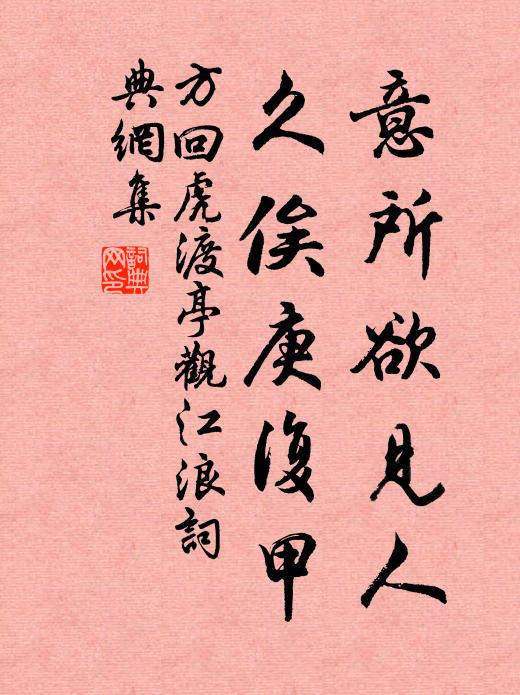 意所欲見人
久俟庚復甲
方回虎渡亭觀江浪詞
典網集
詞典
网印